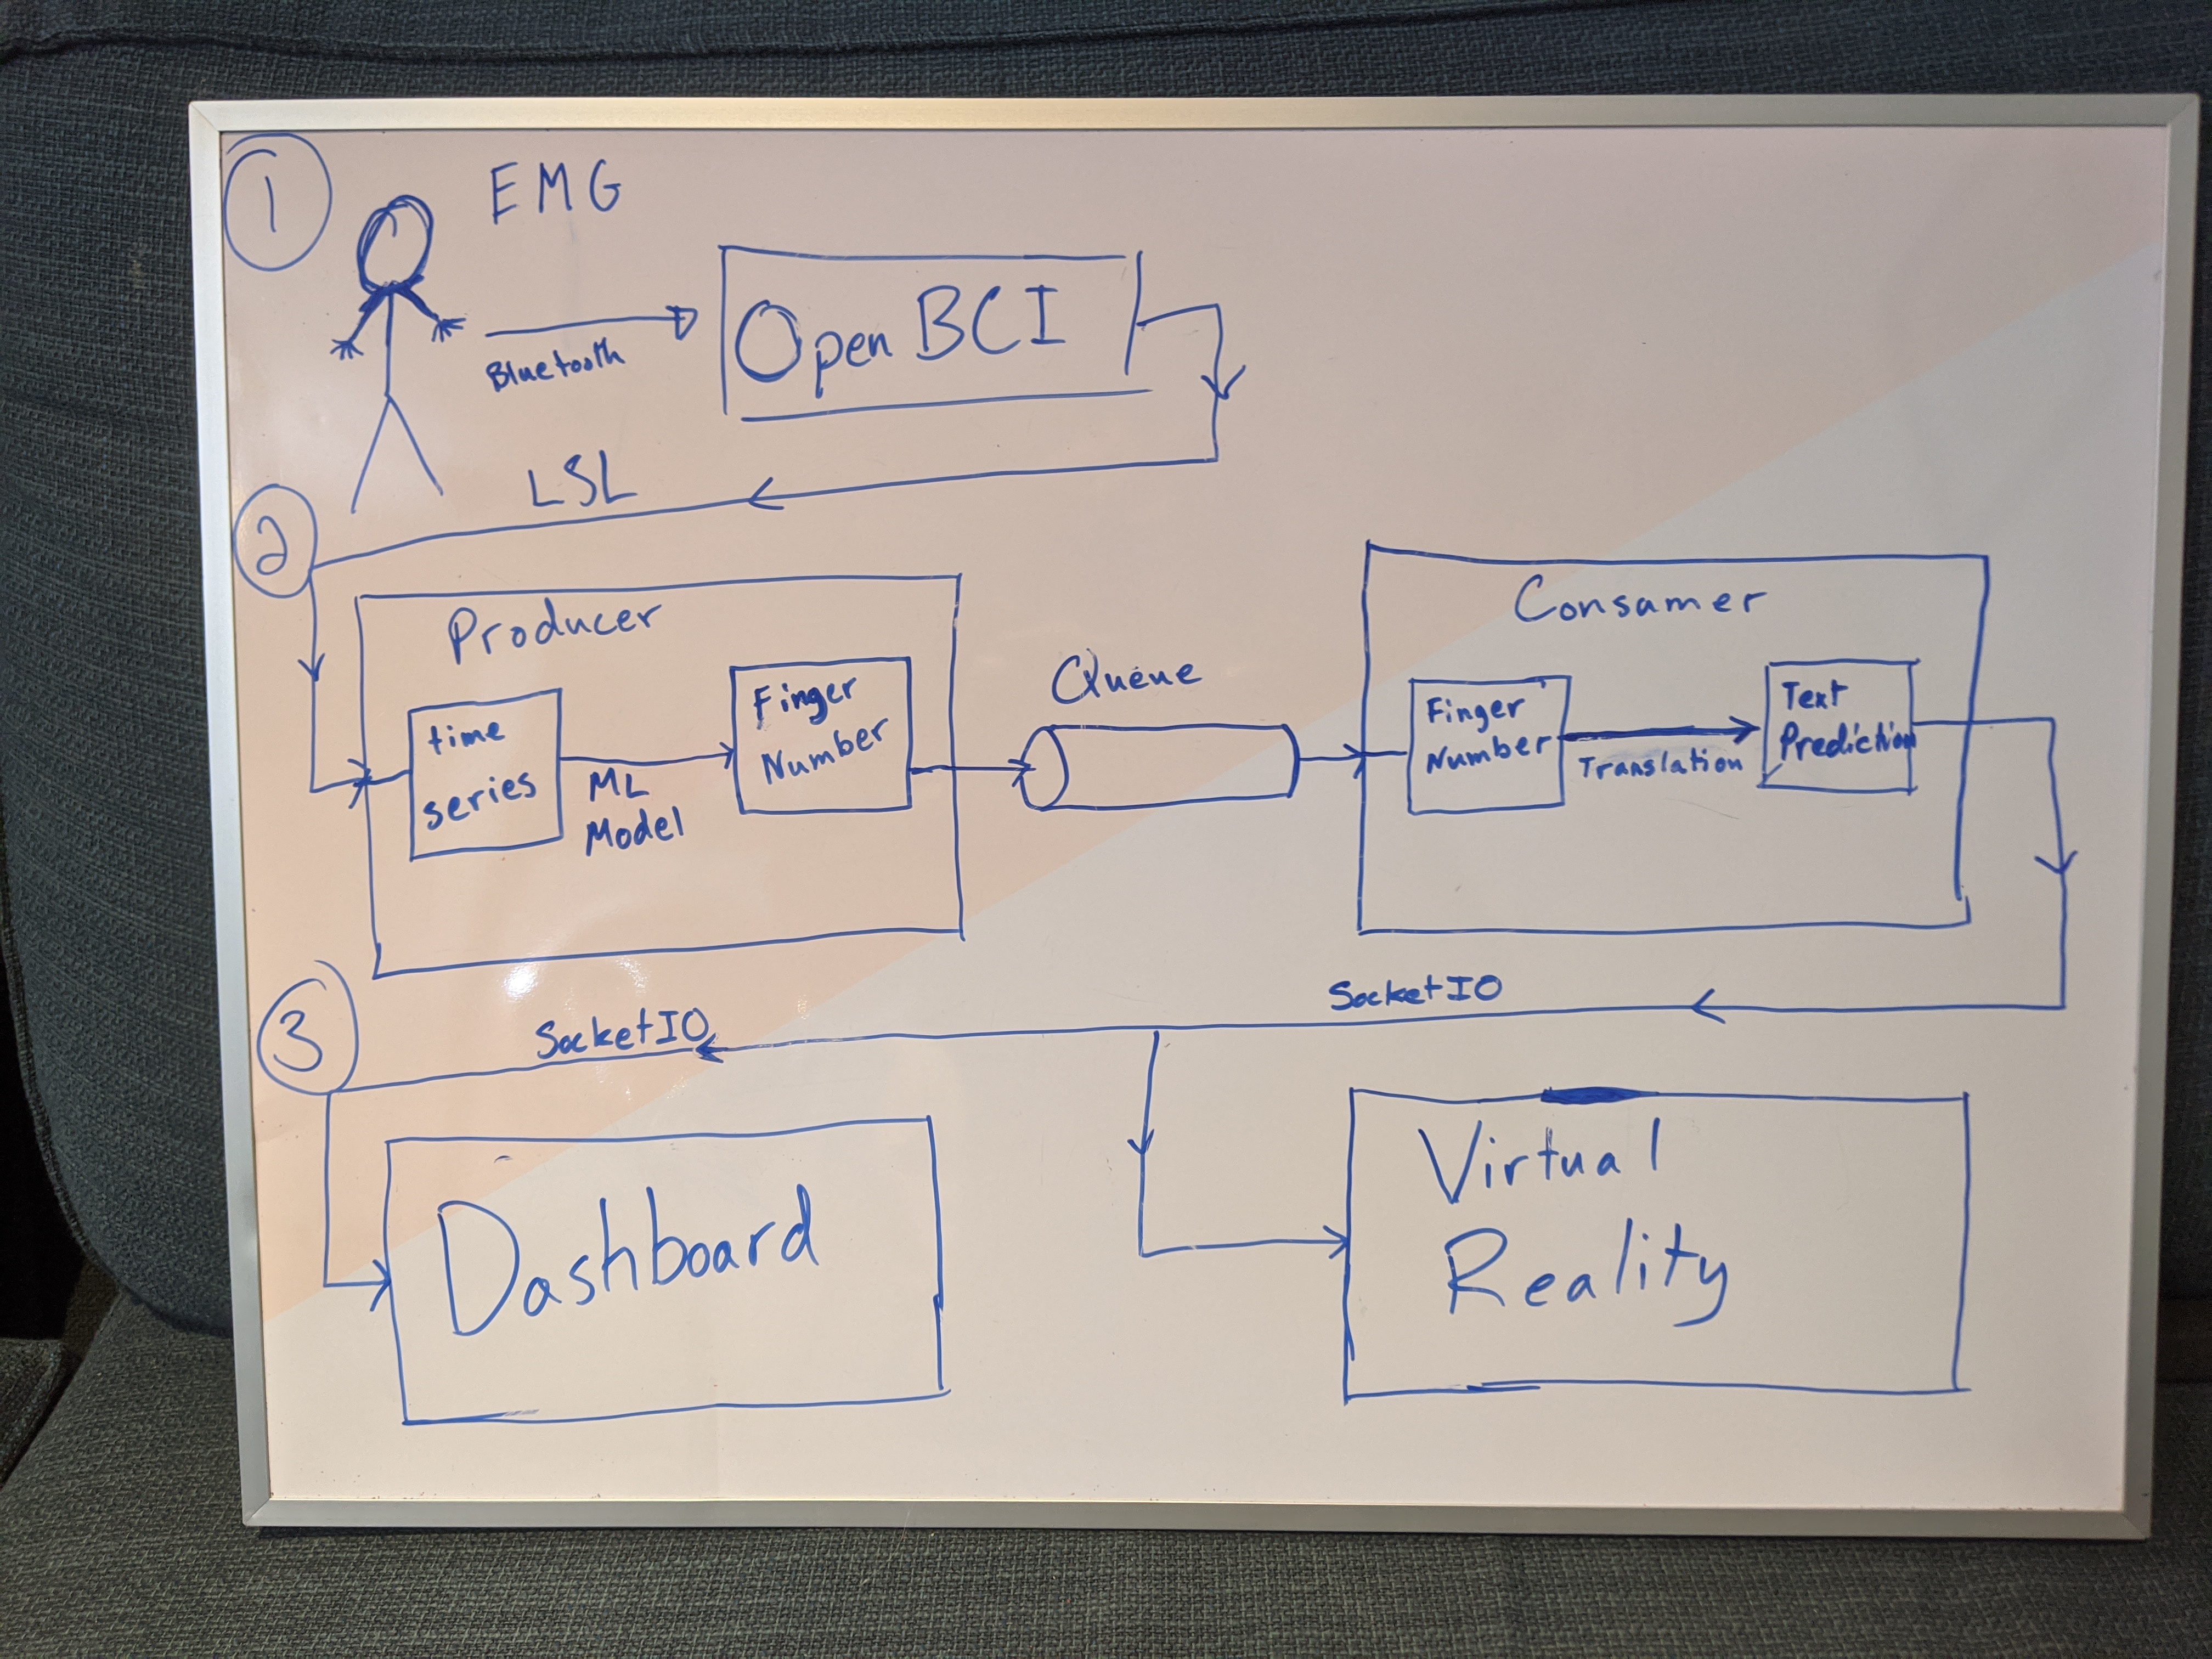 1
EMG
Bluetooth
OpenBCI
LSL
2
Producer
time
series
ML
Model
Finger
Number
Queue
Consamer
Finger
Number
Translation
Text
Prediction
3
SocketIO
SocketIO
Dashboard
Virtual
Reality